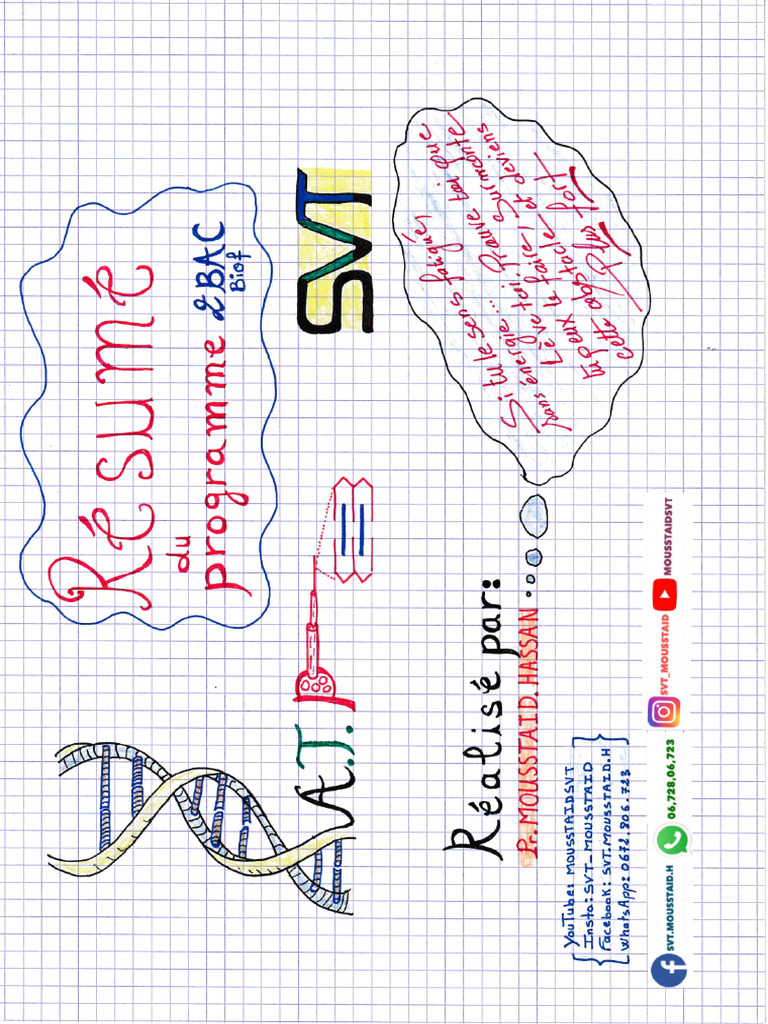 Résumé
du
programme 2BAC
Biof
SVT
A.T.P
Si tu te sens fatigué,
sans énergie... Prouve toi que
Lève toi, Surmonte
tu peux le faire, et deviens
cette obstacle
Plus fort
Réalisé par:
Pr. MOUSSTAID.HASSAN
YouTube: MOUSSTAIDSVT
Insta: SVT_MOUSSTAID
Facebook: SVT.MOUSSTAID.H
WhatsApp: 0672.806.723
SVT.MOUSSTAID.H
06,728,06,723
SVT_MOUSSTAID
MOUSSTAIDSVT